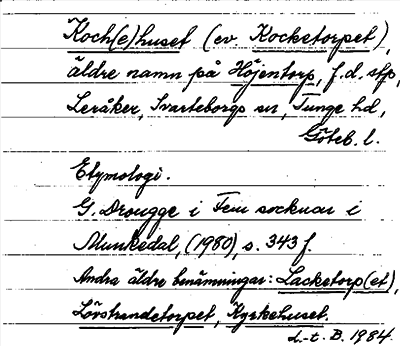 Koch(e)huset (ev Kocketorpet),
äldre namn på Höjentorp, f.d. stp,
Leråker, Svarteborgs sn, Tunge hd,
Göteb. l.
Etymologi.
G. Drougge i Fem socknar i
Munkedal, (1980), s. 343 f.
Andra äldre benämningar: Lacketorp(et),
Lövstrandetorpet, Kyrkehuset.
L-t. B. 1984.